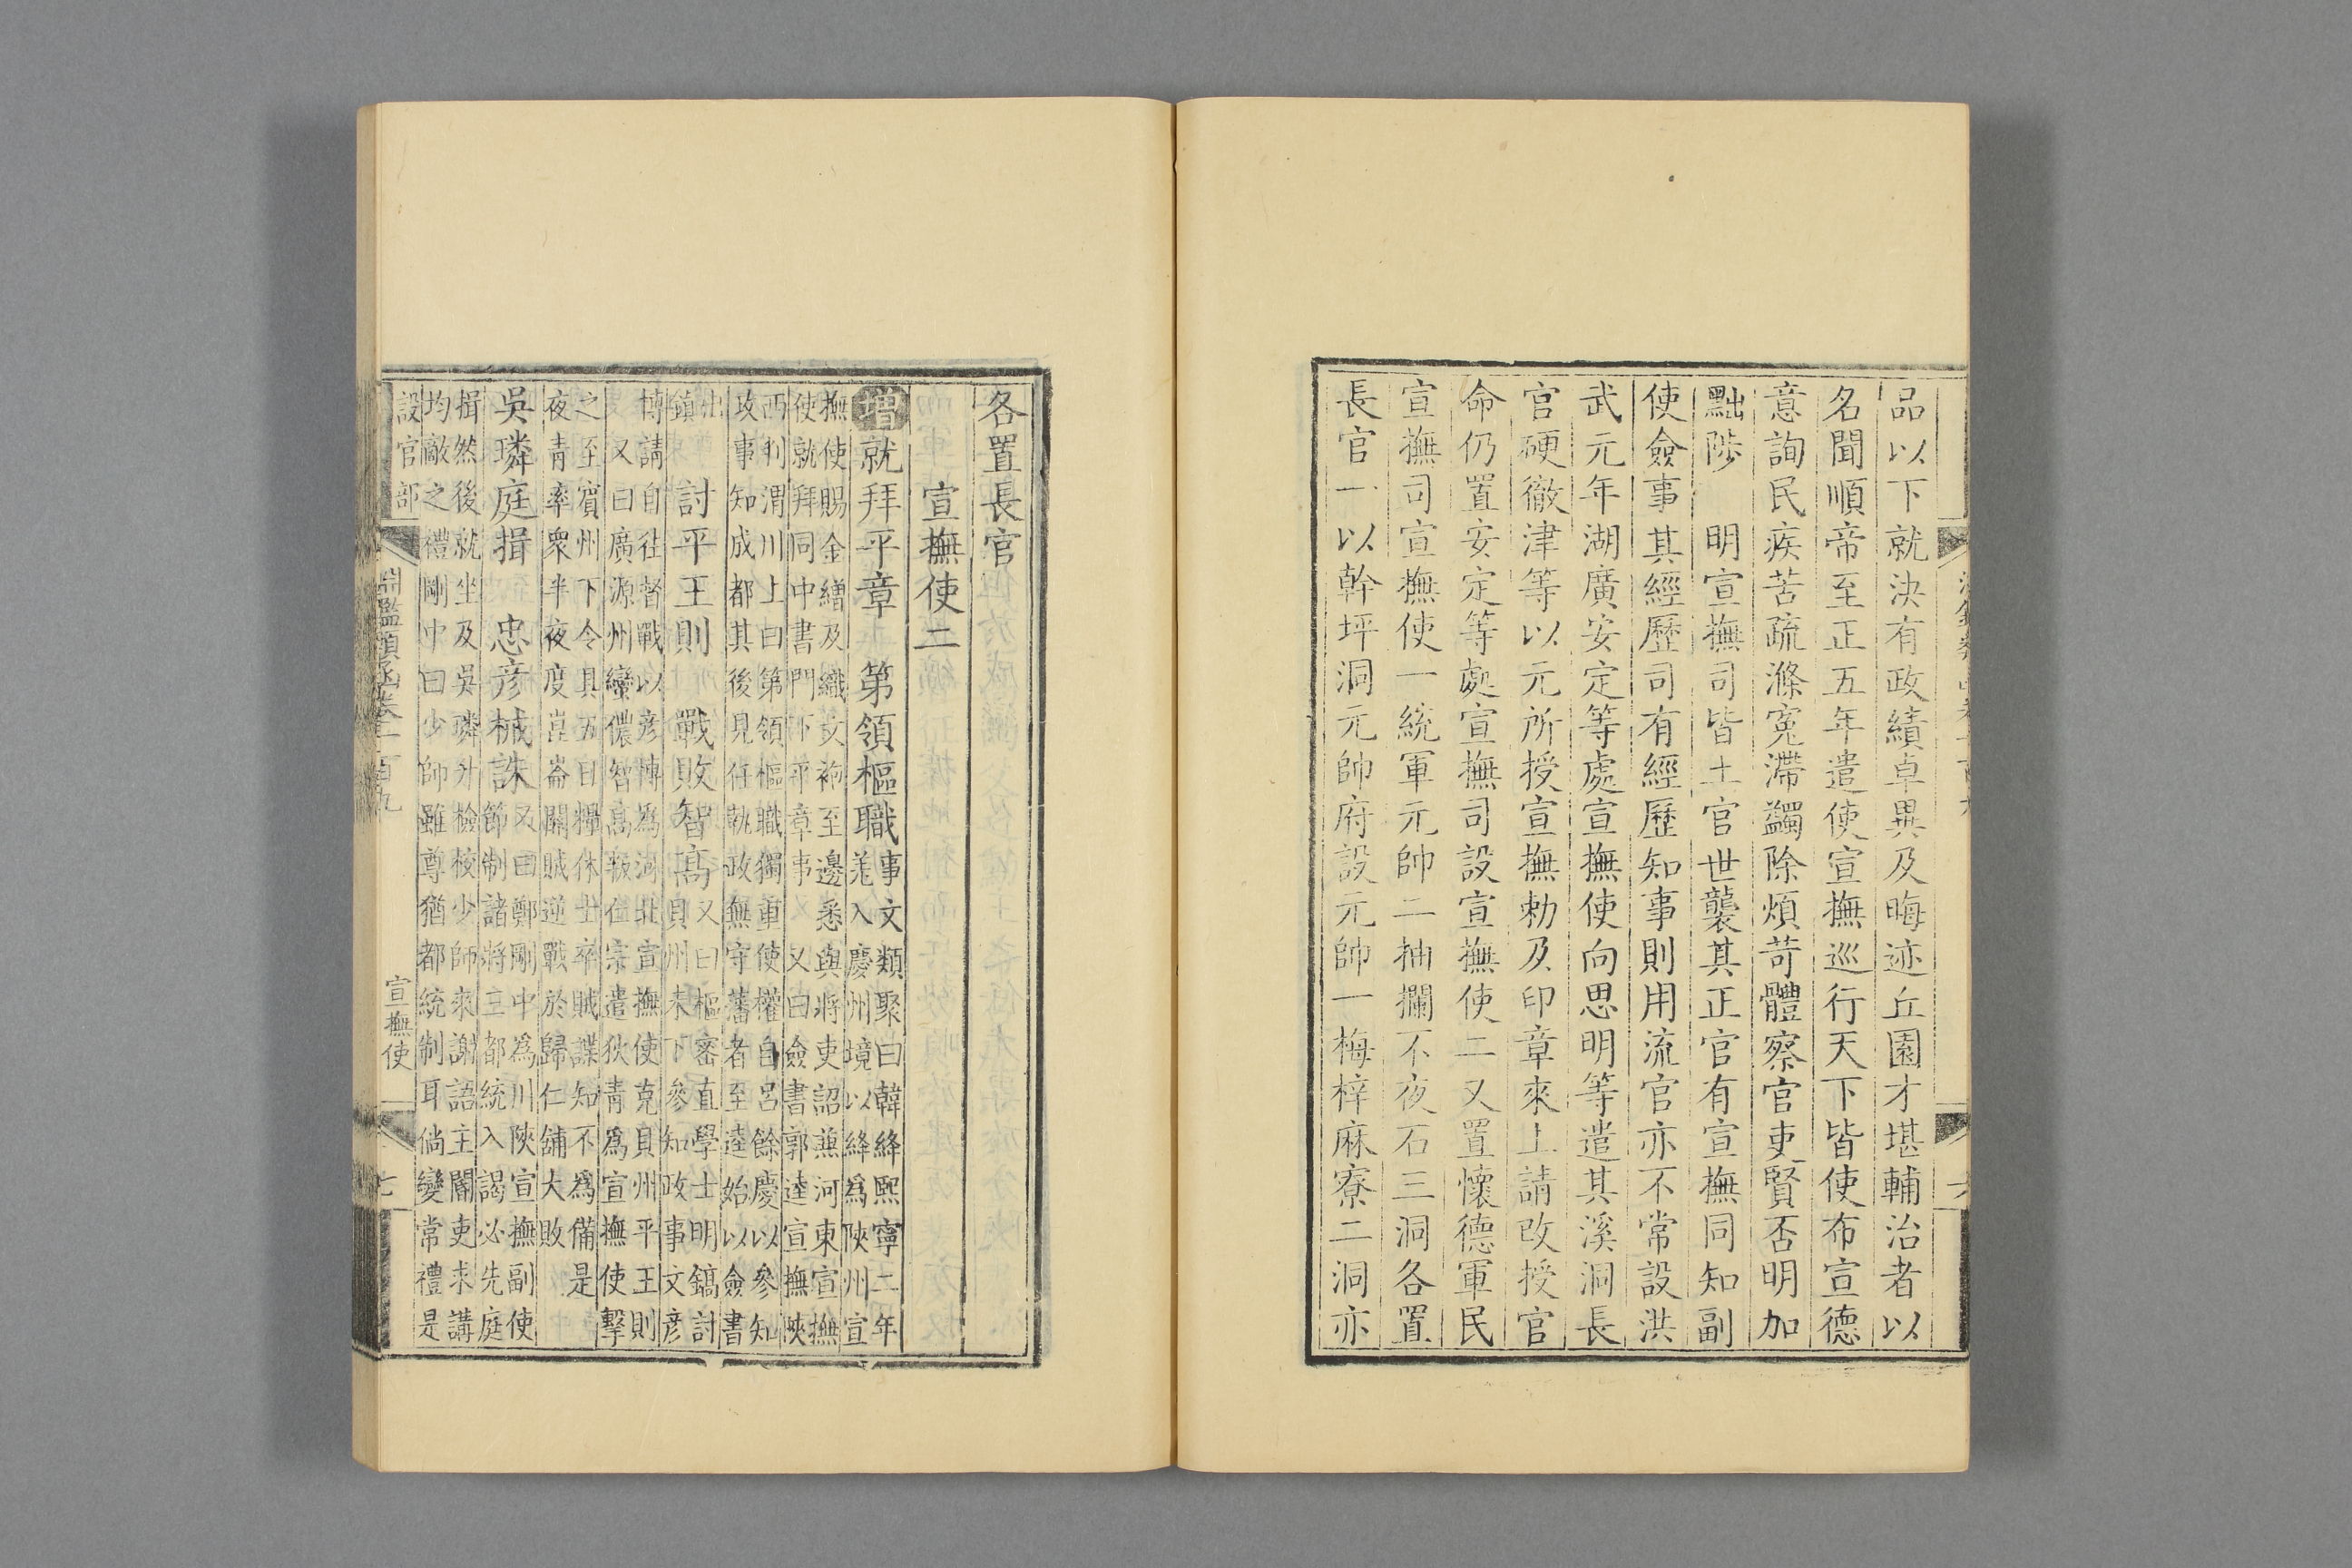 品以下就決有政績卓異及晦迹丘園才堪輔治者以
名聞順帝至正五年遣使宣撫巡行天下皆使布宣德
意詢民疾苦疏滌寃滯蠲除煩苛體察官吏賢否明加
黜陟　明宣撫司皆土官世襲其正官有宣撫同知副
使僉事其經歷司有經歷知事則用流官亦不常設洪
武元年湖廣安定等處宣撫使向思明等遣其溪洞長
官硬徹津等以元所授宣撫勅及印章來上請改授官
命仍置安定等處宣撫司設宣撫使二又置懷德軍民
宣撫司宣撫使一統軍元帥二抽攔不夜石三洞各置
長官一以幹坪洞元帥府設元帥一梅梓麻寮二洞亦
各置長官
宣撫使二
增就拜平章　第領樞職
事文類聚曰韓絳熙寧二年
羗入慶州境以絳為陝州宣
撫使賜金繒及織文袍至邊悉與將吏詔兼河東宣撫
使就拜同中書門下平章事　又曰僉書郭逵宣撫陝
西判渭川上曰第領樞職獨重使權自呂餘慶以參知
政事知成都其後見任執政無守藩者至逵始以僉書
出
鎮
討平王則　戰敗智高
又曰樞密直學士明鎬討
貝州未下參知政事文彦
博請自往督戰以彦博為河北宣撫使克貝州平王則
又曰廣源州蠻儂智高叛仁宗遣狄青為宣撫使擊
之至賓州下令具五日糧休士卒賊諜知不為備是
夜青率衆半夜度崑崙關賊逆戰於歸仁鋪大敗
吳璘庭揖　忠彦械誅
又曰鄭剛中為川陝宣撫副使
節制諸將三都統入謁必先庭
揖然後就坐及吳璘升檢校少師來謝語主閽吏求講
均敵之禮剛中曰少師雖尊猶都統制耳倘變常禮是
設官部
淵鑑類函卷一百九
宣撫使
七